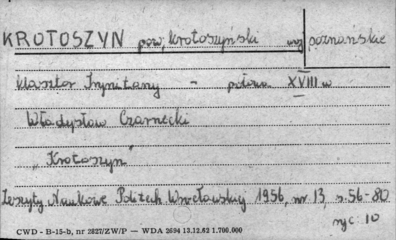 KROTOSZYN pow, krotoszyński woj poznańskie
klasztor Trynitarzy - połowa XVIII w
Władysław Czarnecki
„Krotoszyn"
Zeszyty Naukowe Politech Wrocławskiej 1956, nr 13, s. 56-80
ryc 10
CWD - B-15-b, nr 2827/ZW/P — WDA 2694 13.12.62 1.700.000